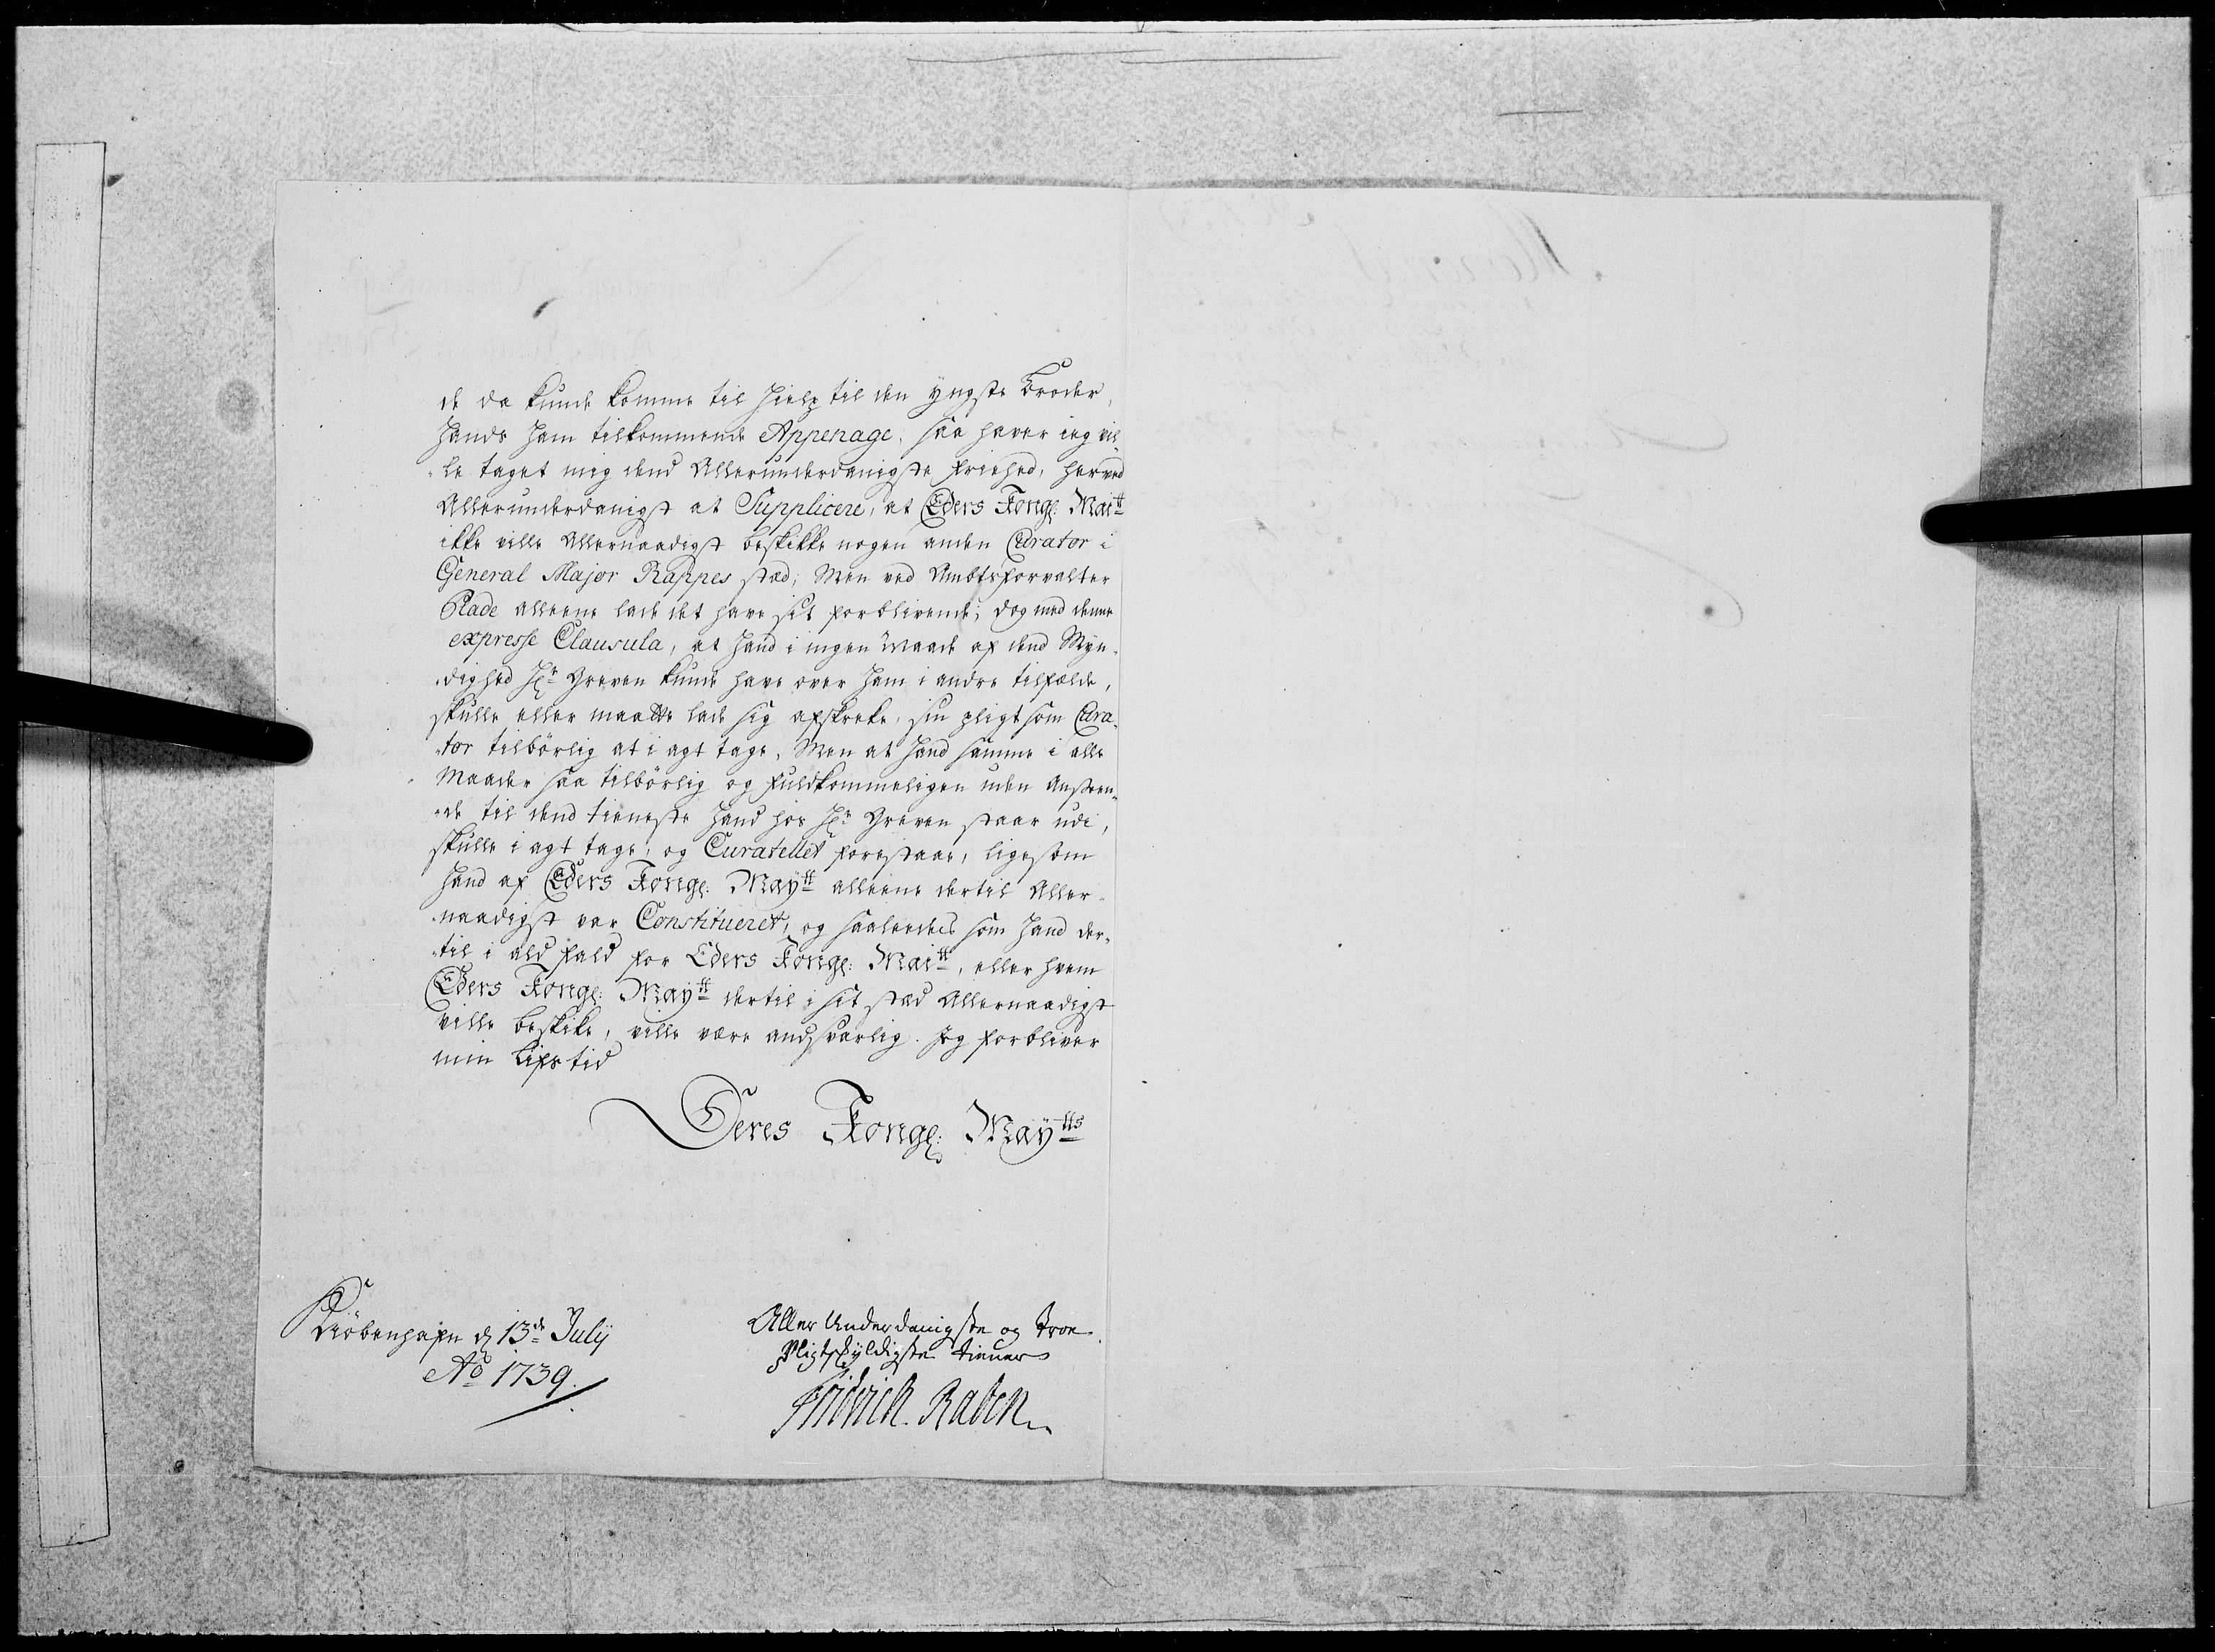 de da kunde komme til Hielp til den yngste Broder,
Hands Ham tilkommende Appenage, saa haver ieg vil
le taget mig dend Allerunderdanigste friehed, herved
Allerunderdanigst at Supplicere, at Eders Kongl: Maitt
ikke ville Allernaadigst beskikke nogen anden Curator i
General Major Rappes sted; Men ved Ambtsforvalter
Rade alleene lade det have sit forblivende; dog med denne
expresse Clausula, at Hand i ingen Maade af dend Myn-
-dighed Hr Greven kunde have over Ham i andre tilfælde,
skulle eller maatte lade sig afskreke, sin pligt som Cura-
-tor tilbörlig at i agt tage, Men at Hand samme i alle
Maader saa tilbörlig og fuldkommeligen uden Anseen-
-de til dend tieneste Hand hos Hr Greven staar udi,
skulle i agt tage, og Curatellet forestaae, ligesom
Hand af Eders Kongl: Maytt alleene dertil Aller-
-naadigst var Constitueret, og saaledes som Hand der-
-til i ald fald for Eders Kongl: Maitt, eller hvem
Eders Kongl: Maytt dertil i sit sted Allernaadigst
ville beskike, ville være andsvarlig. Jeg forbliver
min Lifs tid
Deres Kongl: Maytts
Kiöbenhafn d 13de July
Ao 1739.
Aller Underdanigste og troe
Pligtskyldigste tiener
Friderich Raben